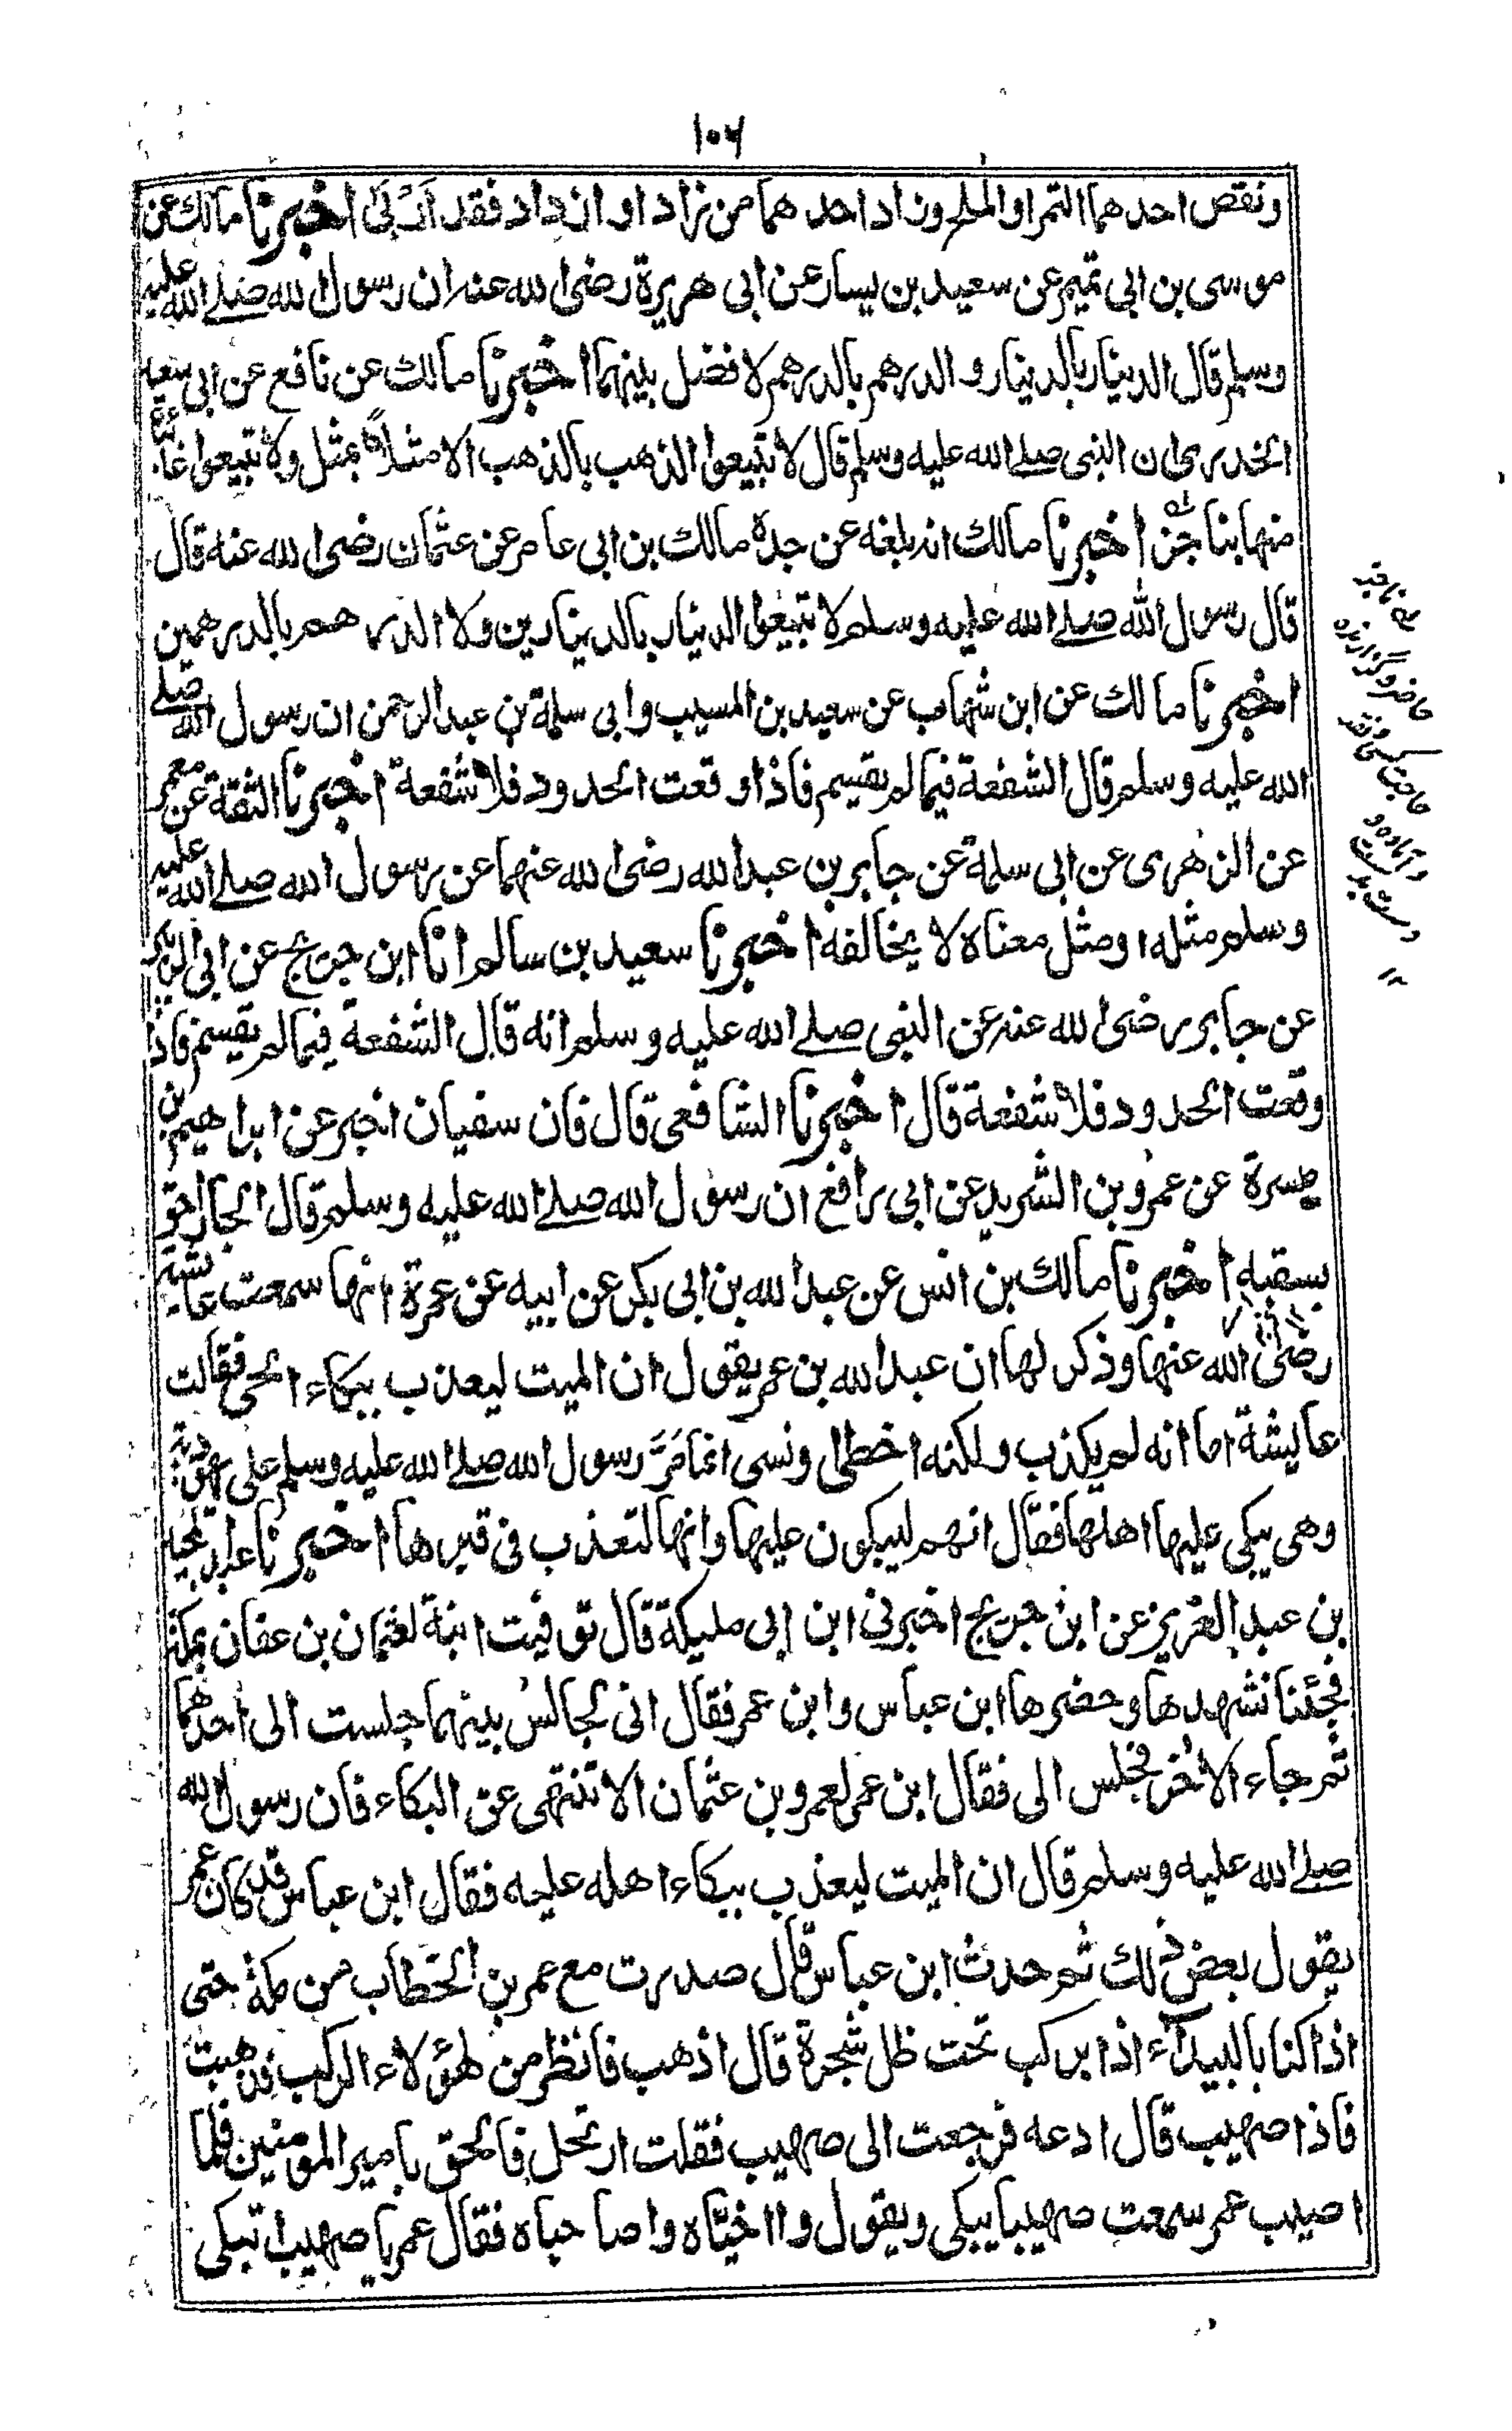 ١٠٦
ونقص احدهما التمر او الملح وزاد احدهما من زاد او ازداد فقد اَرْبٰی اخبرنا مالك عن
موسى بن ابى تميم عن سعيد بن يسار عن ابى هريرة رضى الله عنه ان رسول الله صلے الله عليه
وسلم قال الدينار بالدينار والدرهم بالدرهم لا فضل بينهما اخبرنا مالك عن نافع عن ابى سعيد
الخدرى ان النبى صلے الله عليه وسلم قال لا تبيعوا الذهب بالذهب الا مثلاً بمثل ولا تبيعوا غائبًا
منها بناجز اخبرنا مالك انه بلغه عن جده مالك بن ابى عامر عن عثمان رضى الله عنه قال
قال رسول الله صلے الله عليه وسلم لا تبيعوا الدينار بالدينارين ولا الدرهم بالدرهمين
اخبرنا مالك عن ابن شهاب عن سعيد بن المسيب وابى سلمة بن عبد الرحمن ان رسول الله صلے
الله عليه وسلم قال الشفعة فيما لم يقسم فاذا وقعت الحدود فلا شفعة اخبرنا الثقة عن معمر
عن الزهرى عن ابى سلمة عن جابر بن عبد الله رضى الله عنهما عن رسول الله صلے الله عليه
وسلم مثله او مثل معناه لا يخالفه اخبرنا سعيد بن سالم انا ابن جريج عن ابى الزبير
عن جابر رضى الله عنه عن النبى صلے الله عليه وسلم انه قال الشفعة فيما لم يقسم فاذا
وقعت الحدود فلا شفعة قال اخبرنا الشافعى قال فان سفيان اخبر عن ابراهيم بن
ميسرة عن عمرو بن الشريد عن ابى رافع ان رسول الله صلے الله عليه وسلم قال الجار احق
بسقبه اخبرنا مالك بن انس عن عبد الله بن ابى بكر عن ابيه عن عمرة انها سمعت عايشة
رضى الله عنها وذكر لها ان عبد الله بن عمر يقول ان الميت ليعذب ببكاء الحى فقالت
عايشة اما انه لم يكذب ولكنه اخطأ او نسى انما مَرَّ رسول الله صلے الله عليه وسلم على يهودية
وهى يبكى عليها اهلها فقال انهم ليبكون عليها وانها لتعذب فى قبرها اخبرنا عبد المجيد
بن عبد العزيز عن ابن جريج اخبرنى ابن ابى مليكة قال توفيت ابنة لعثمان بن عفان بمكة
فجئنا نشهدها وحضرها ابن عباس وابن عمر فقال انى لجالس بينهما جلست الى احدهما
ثم جاء الاخر فجلس الى فقال ابن عمر لعمرو بن عثمان الا تنتهى عن البكاء فان رسول الله
صلے الله عليه وسلم قال ان الميت ليعذب ببكاء اهله عليه فقال ابن عباس قد كان عمر
يقول بعض ذلك ثم حدث ابن عباس قال صدرت مع عمر بن الخطاب من مكة حتى
اذا كنا بالبيداء اذا بركب تحت ظل شجرة قال اذهب فانظر من هؤلاء الركب فذهبت
فاذا صهيب قال ادعه فرجعت الى صهيب فقلت ارتحل فالحق بامير المومنين فلما
اصيب عمر سمعت صهيبا يبكى ويقول وا اخيّاه وا صاحباه فقال عمر يا صهيب اتبكى